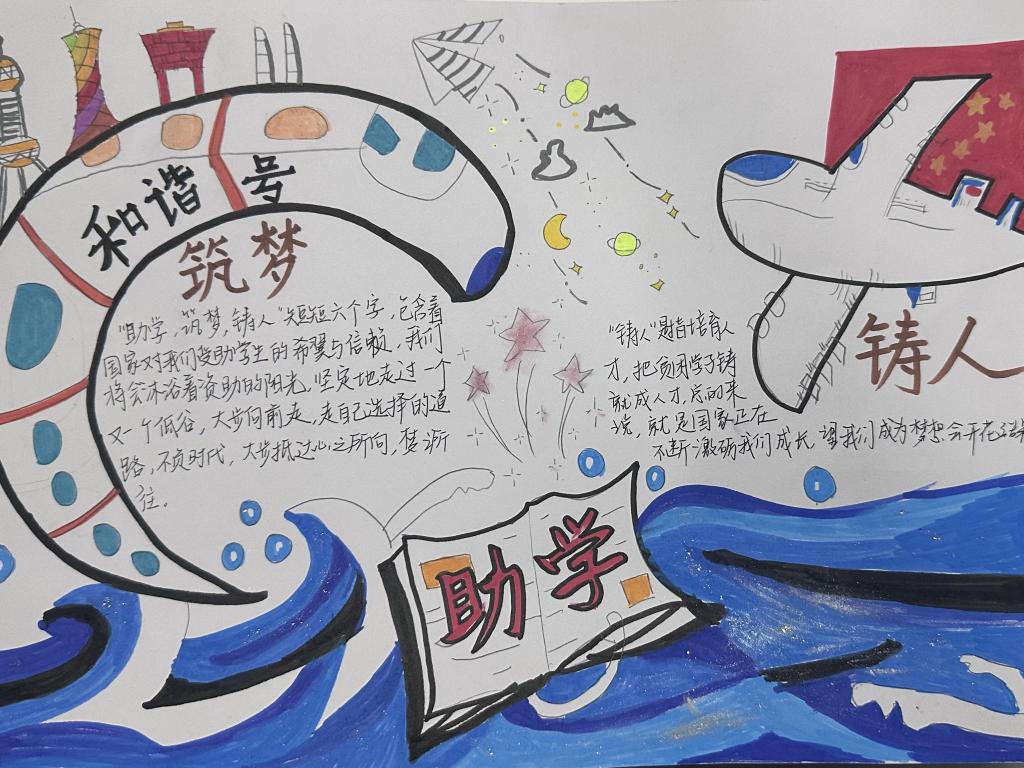 和谐号
筑梦
“助学，筑梦，铸人”短短六个字，包含着
国家对我们受助学生的希翼与信赖，我们
将会沐浴着资助的阳光，坚定地走过一个
又一个低谷，大步向前走，走自己选择的道
路，不负时代，大步抵达心之所向，梦之所
往。
铸人
“铸人”是指培育人
才，把贫困学子铸
就成人才，总的来
说，就是国家正在
不断激励我们成长，望我们成为梦想会开花
助学